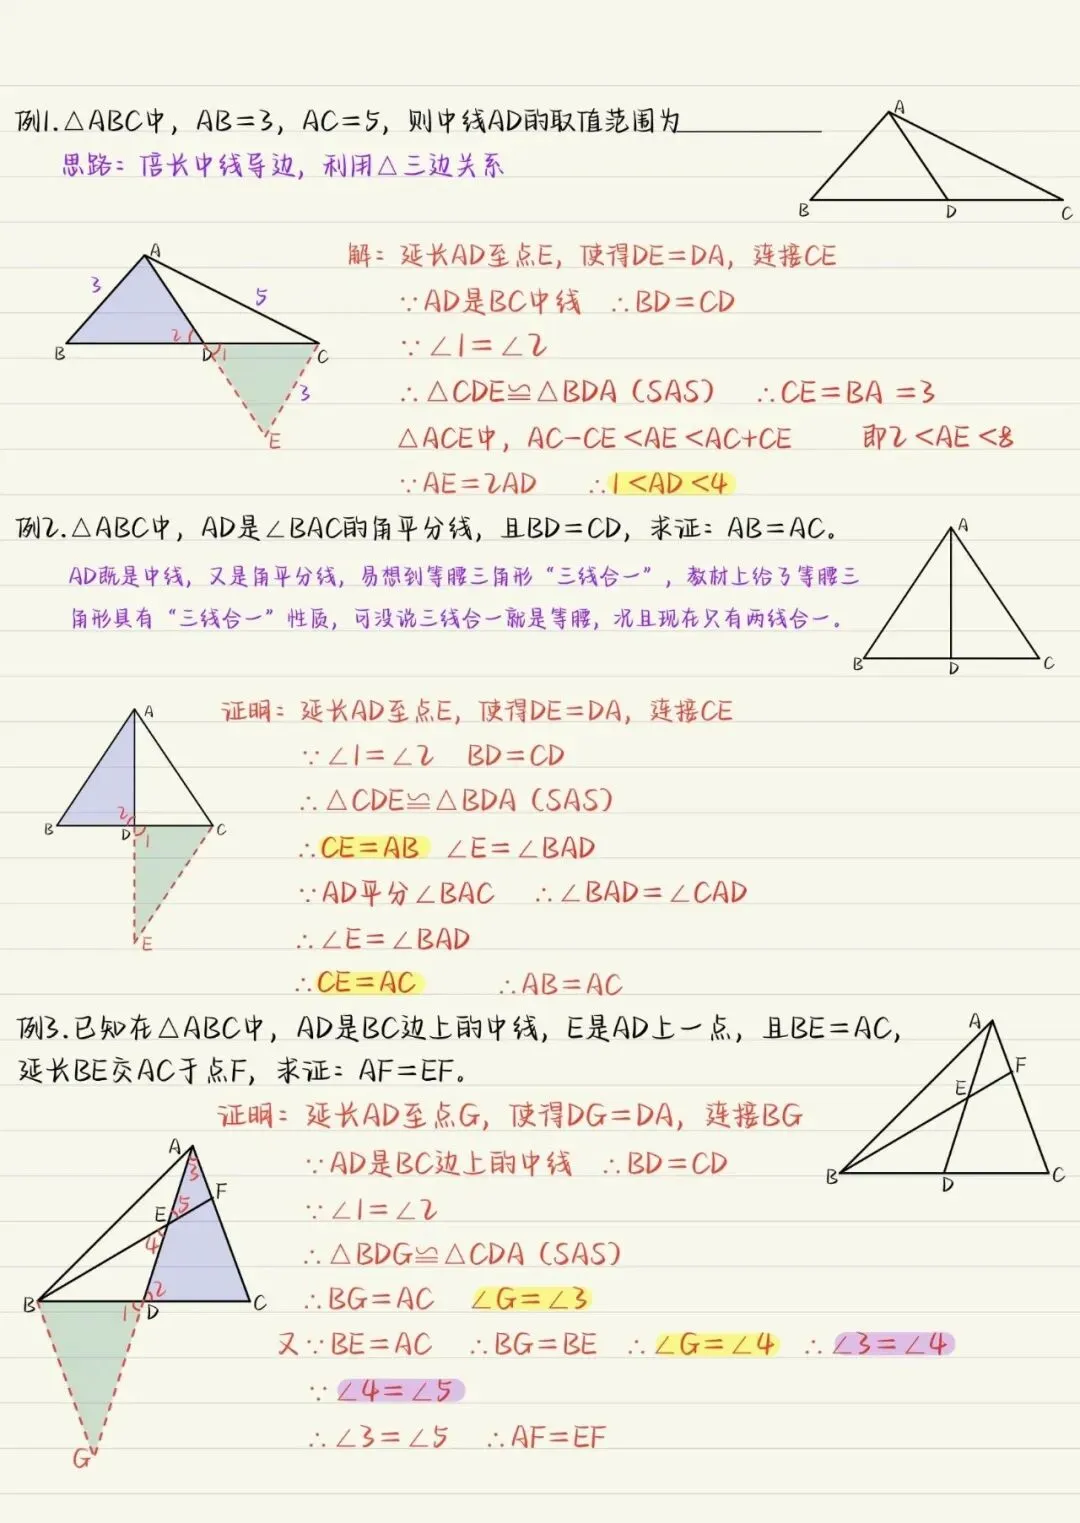 例1.△ABC中，AB=3，AC=5，则中线AD的取值范围为__________
思路：倍长中线导边，利用△三边关系
A
B
D
C
A
3
5
B
2
D
1
C
3
E
解：延长AD至点E，使得DE=DA，连接CE
∵AD是BC中线 ∴BD=CD
∵∠1=∠2
∴△CDE≌△BDA（SAS） ∴CE=BA=3
△ACE中，AC-CE<AE<AC+CE 即2<AE<8
∵AE=2AD ∴1<AD<4
例2.△ABC中，AD是∠BAC的角平分线，且BD=CD，求证：AB=AC。
AD既是中线，又是角平分线，易想到等腰三角形“三线合一”，教材上给了等腰三
角形具有“三线合一”性质，可没说三线合一就是等腰，况且现在只有两线合一。
A
B
D
C
A
B
2
D
1
C
E
证明：延长AD至点E，使得DE=DA，连接CE
∵∠1=∠2 BD=CD
∴△CDE≌△BDA（SAS）
∴CE=AB ∠E=∠BAD
∵AD平分∠BAC ∴∠BAD=∠CAD
∴∠E=∠BAD
∴CE=AC ∴AB=AC
例3.已知在△ABC中，AD是BC边上的中线，E是AD上一点，且BE=AC，
延长BE交AC于点F，求证：AF=EF。
A
F
E
B
D
C
A
3
F
5
E
4
B
1
2
D
C
G
证明：延长AD至点G，使得DG=DA，连接BG
∵AD是BC边上的中线 ∴BD=CD
∵∠1=∠2
∴△BDG≌△CDA（SAS）
∴BG=AC ∠G=∠3
又∵BE=AC ∴BG=BE ∴∠G=∠4 ∴∠3=∠4
∵∠4=∠5
∴∠3=∠5 ∴AF=EF